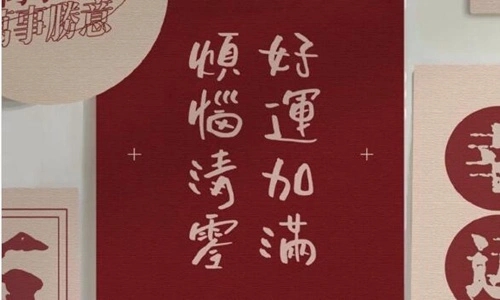 好運加滿
煩惱清零
萬事勝意